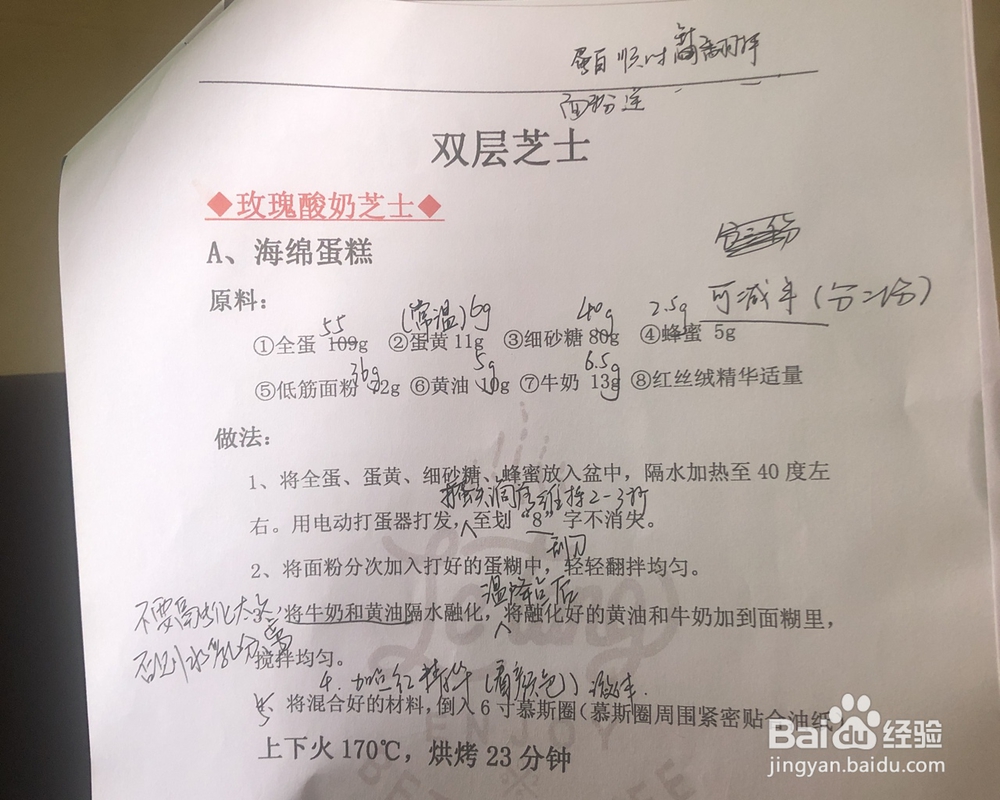 蛋白 顺时针 翻拌
面粉
双层芝士
◆玫瑰酸奶芝士◆
A、海绵蛋糕
原料：
可减半（分二份）
55 （常温）6g 40g 2.5g
①全蛋 109g ②蛋黄 11g ③细砂糖 80g ④蜂蜜 5g
36g 5g 6.5g
⑤低筋面粉 72g ⑥黄油 10g ⑦牛奶 13g ⑧红丝绒精华适量
做法：
1、将全蛋、蛋黄、细砂糖、蜂蜜放入盆中，隔水加热至 40 度左
维持2-3秒
右。用电动打蛋器打发，至划“8”字不消失。
刮刀
2、将面粉分次加入打好的蛋糊中，轻轻翻拌均匀。
温降台后
不要高
3、将牛奶和黄油隔水融化，将融化好的黄油和牛奶加到面糊里，
否则水乳分离
搅拌均匀。
4. 加点红精华（看颜色）
5、将混合好的材料，倒入 6 寸慕斯圈（慕斯圈周围紧密贴合油纸）
上下火 170℃，烘烤 23 分钟
ENJOY
Baidu 经验
jingyan.baidu.com